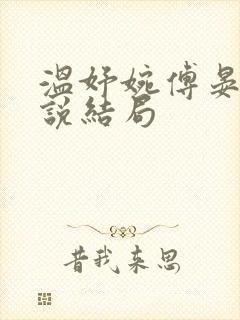 溫妤婉傅晏
說結局
昔我來思